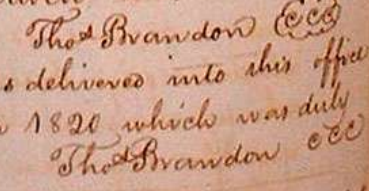 Thos Brandon CCC
s delivered into this office
1820 which was duly
Thos Brandon CCC